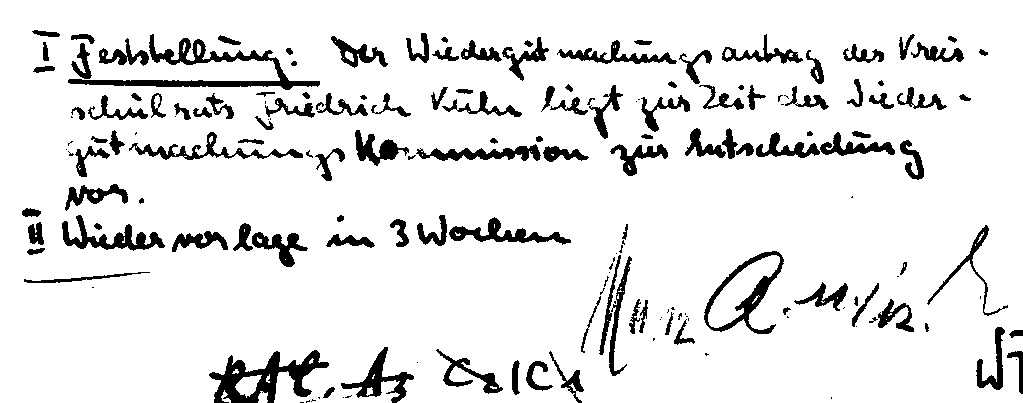 I Feststellung: Der Wiedergutmachungsantrag des Kreis-
schulrats Friedrich Kühn liegt zur Zeit der Wieder-
gutmachungs Kommission zur Entscheidung
vor.
II Wiedervorlage in 3 Wochen